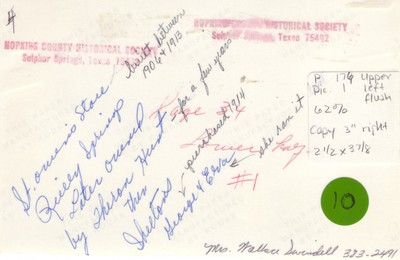 4
HOPKINS COUNTY HISTORICAL SOCIETY
Sulphur Springs, Texas 75482
HOPKINS COUNTY HISTORICAL SOCIETY
Sulphur Springs, Texas 75482
built between
1906 & 1913
St. Owens Store
Quilly Springs
Later owned
by Thiron Hunt
for a few years
then
Sheltons
purchased 1914
George & Eva
she ran it
Page 84
Lower
#1
P. 176 upper
Pic. 1 left
flush
62%
copy 3" right
2 1/2 x 3 7/8
10
Mrs. Wallace Swindell 383-2491